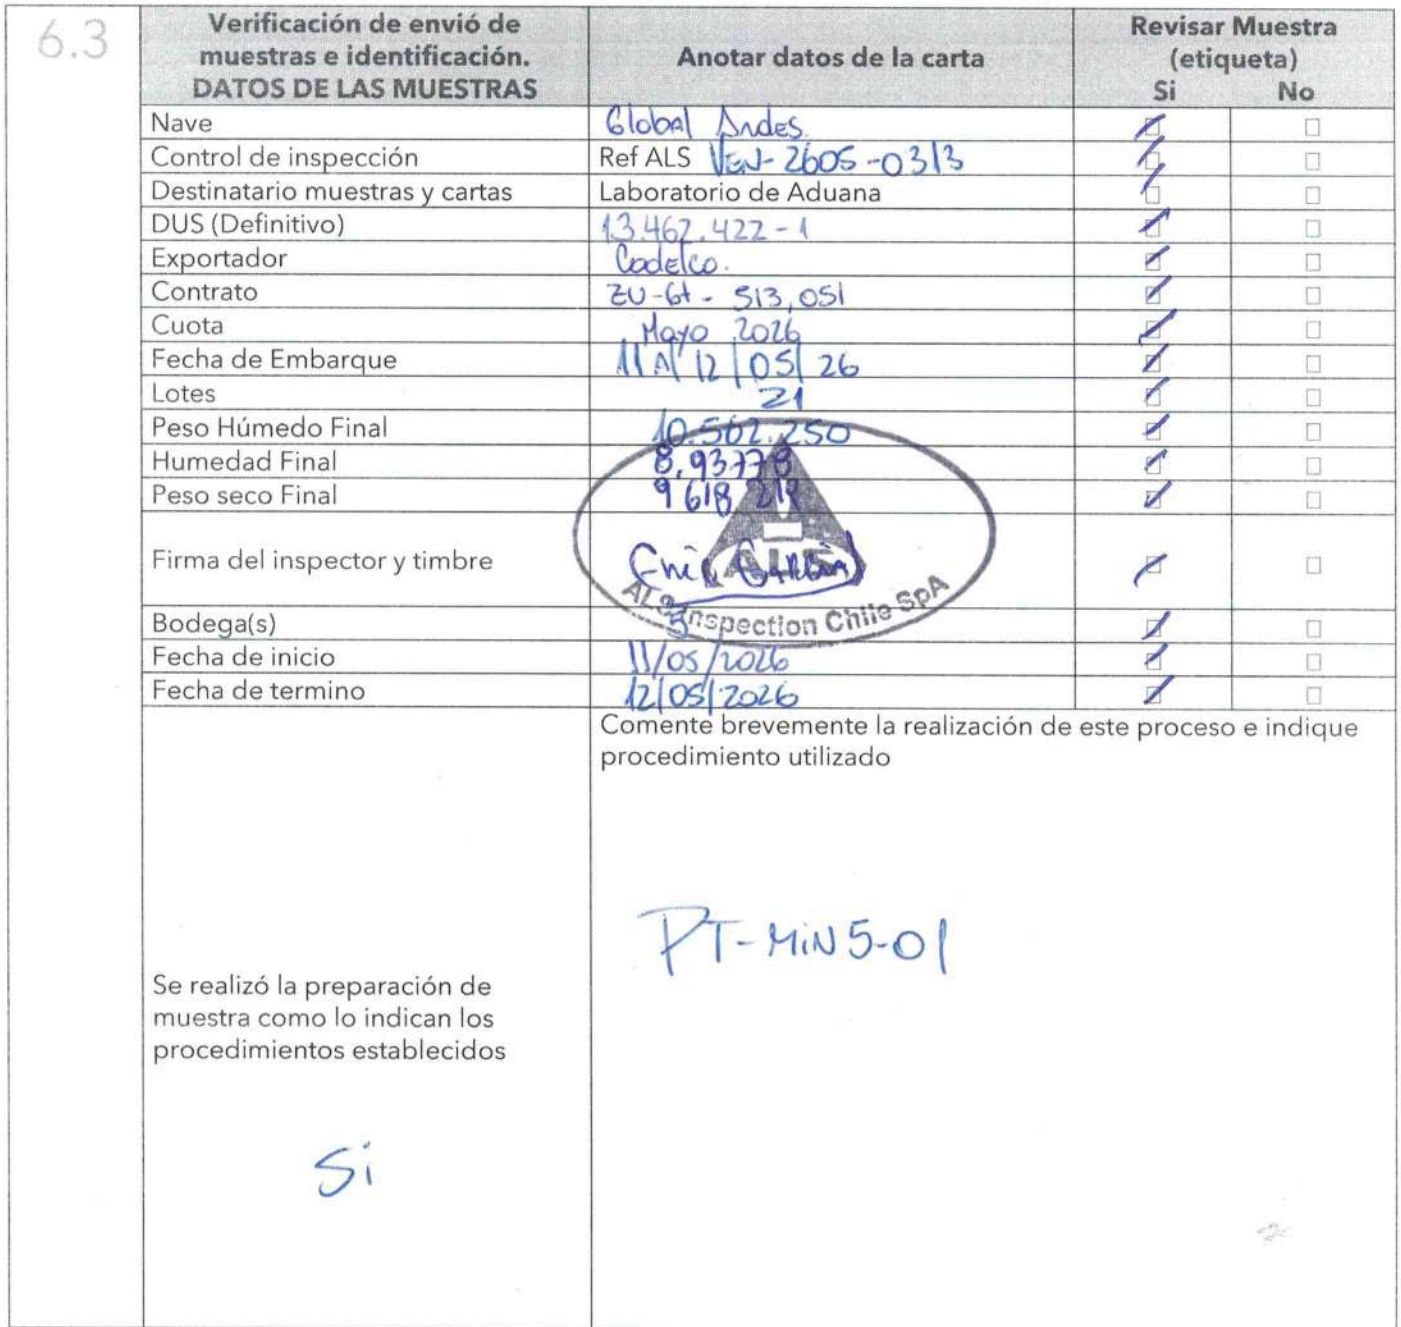 6.3
Verificación de envió de muestras e identificación. DATOS DE LAS MUESTRAS
Anotar datos de la carta
Revisar Muestra (etiqueta)
Si No
Nave Global Andes.
Control de inspección Ref ALS VEN-2605-0313
Destinatario muestras y cartas Laboratorio de Aduana
DUS (Definitivo) 13.462.422-1
Exportador Codelco.
Contrato ZU-Gt- 513,051
Cuota Mayo 2026
Fecha de Embarque 11 A 12/05/26
Lotes 21
Peso Húmedo Final 10.562.250
Humedad Final 8,93778
Peso seco Final 9 618 219
Firma del inspector y timbre
ALS
ALS Inspection Chile SpA
Bodega(s) 5
Fecha de inicio 11/05/2026
Fecha de termino 12/05/2026
Comente brevemente la realización de este proceso e indique
procedimiento utilizado
PT-MiN 5-01
Se realizó la preparación de
muestra como lo indican los
procedimientos establecidos
Si